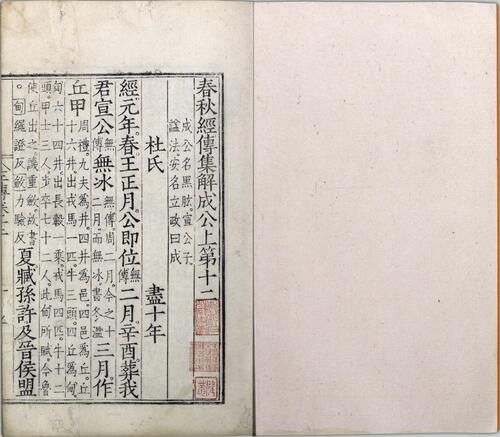 春秋經傳集解成公上第十二
成公名黑肱宣公子
諡法安民立政曰成
杜氏 盡十年
經元年春王正月公即位無傳二月辛酉葬我
君宣公無傳無冰無傳周二月今之十二月而無冰書冬溫三月作
丘甲周禮九夫為井四井為邑四邑為丘丘十六井出戎馬一匹牛三頭四丘為甸
甸六十四井出長轂一乘戎馬四匹牛十二頭甲士三人步卒七十二人此甸所賦今魯
使丘出之譏重斂故書○甸繩證反斂力驗反夏臧孫許及晉侯盟